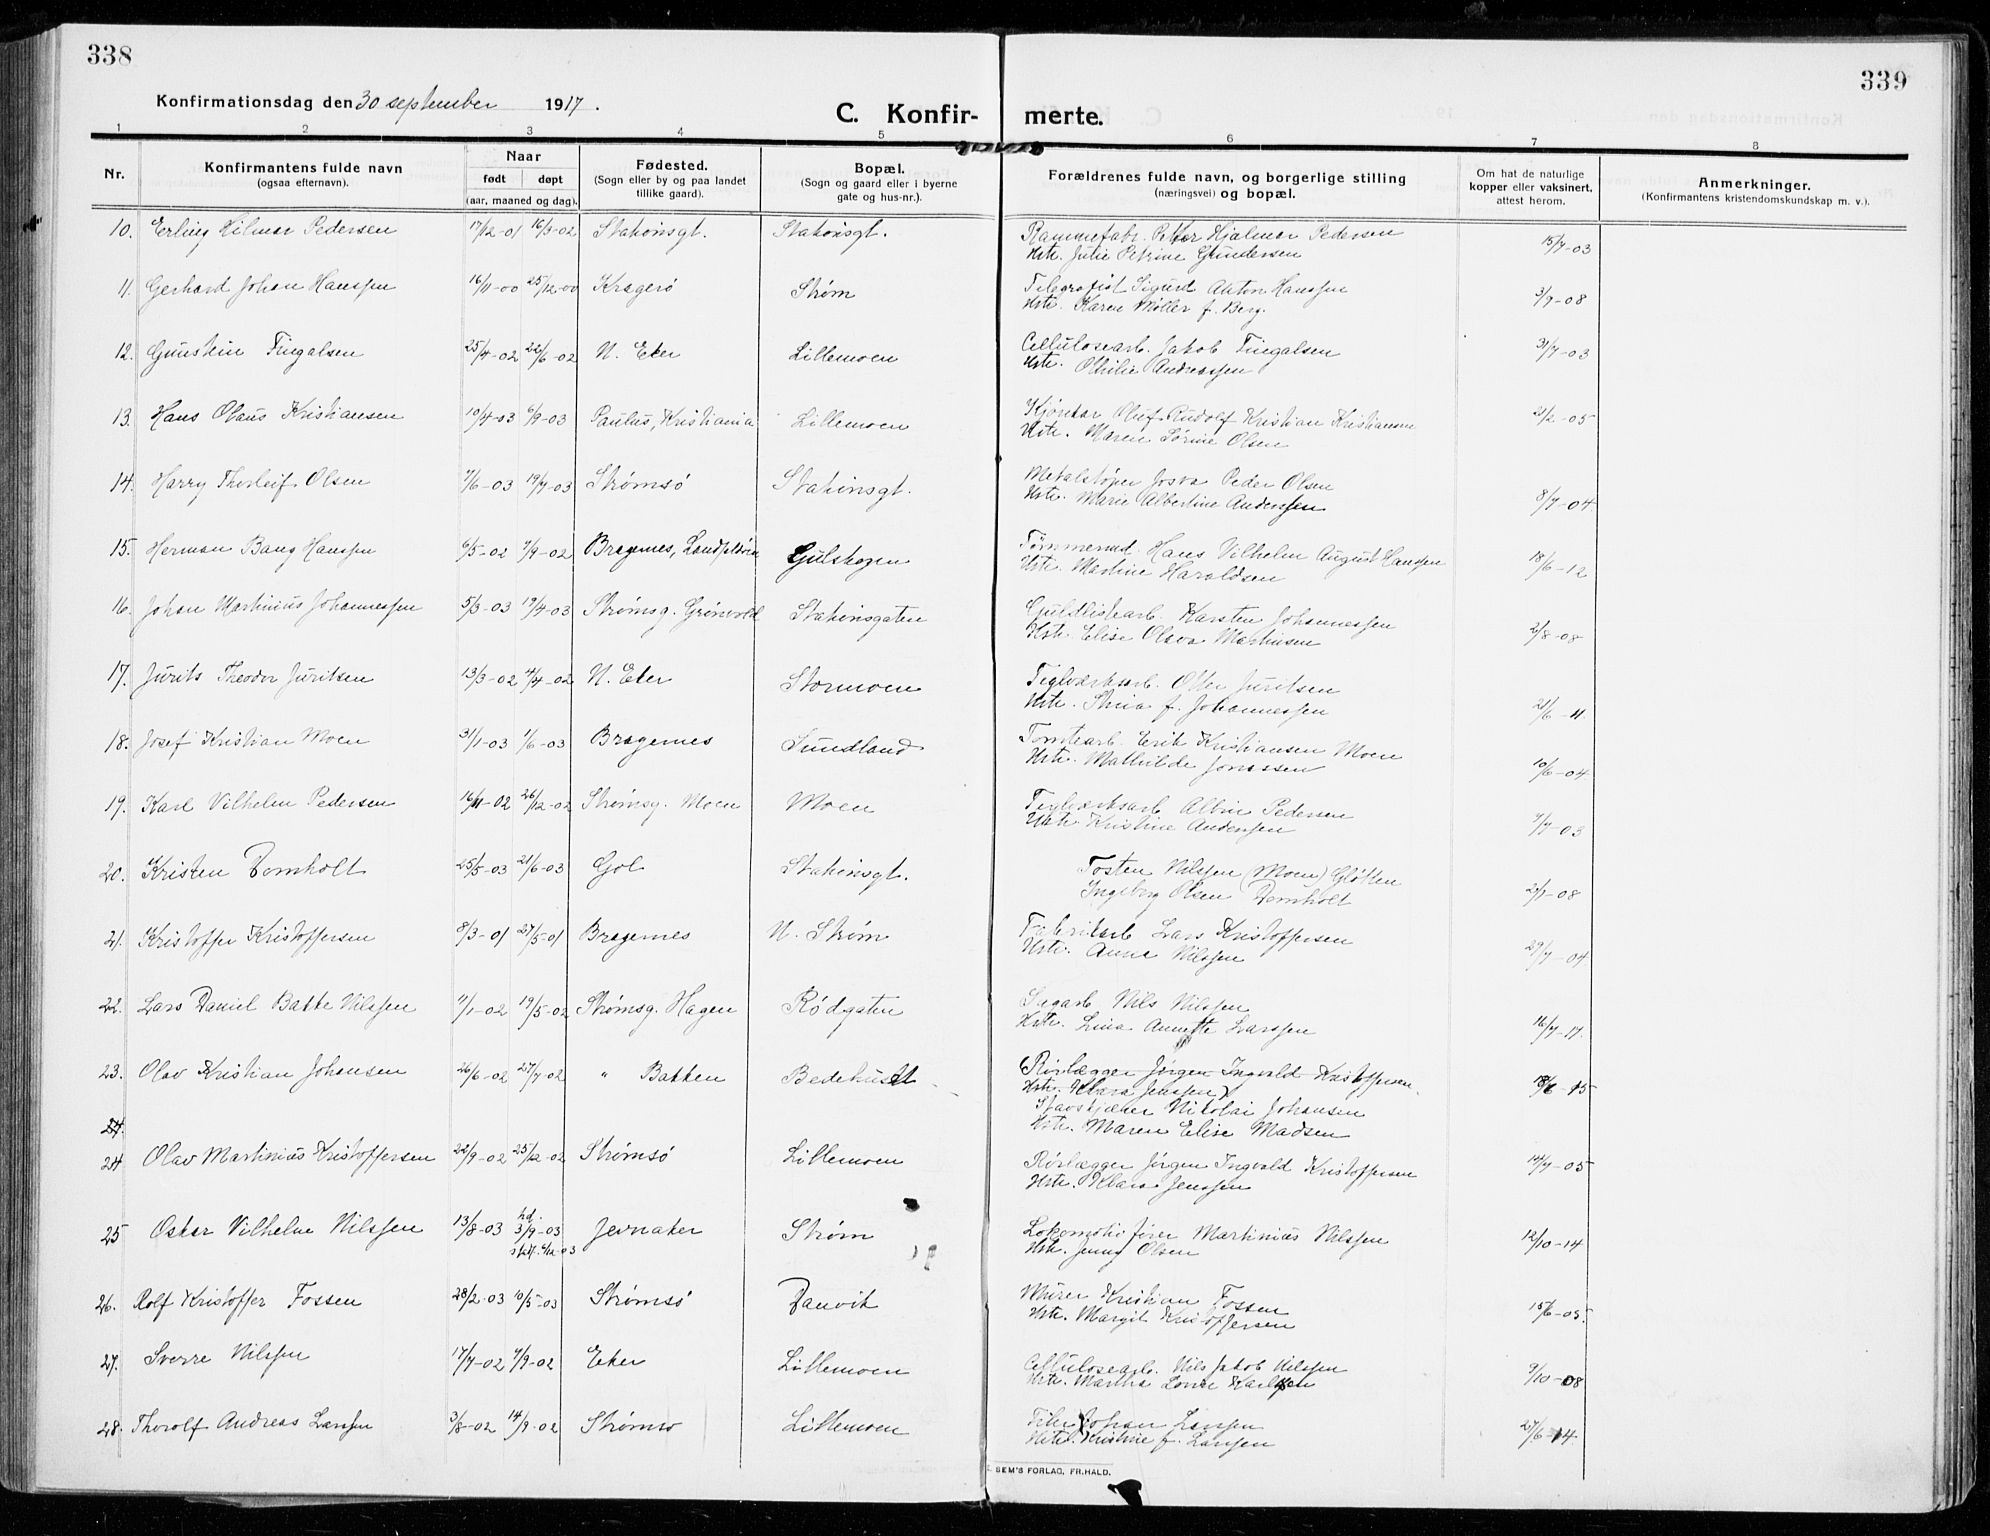 338
339
Konfirmationsdag den 30 september 1917.
C. Konfir- merte.
1 2 3 4 5 6 7 8
Nr.
Konfirmantens fulde navn
(ogsaa efternavn).
Naar
født døpt
(aar, maaned og dag).
Fødested.
(Sogn eller by og paa landet
tillike gaard).
Bopæl.
(Sogn og gaard eller i byerne
gate og hus-nr.).
Forældrenes fulde navn, og borgerlige stilling
(næringsvei) og bopæl.
Om hat de naturlige
kopper eller vaksinert,
attest herom.
Anmerkninger.
(Konfirmantens kristendomskundskap m. v.).
10. Erling Hilmar Pedersen 17/12-01 16/3-02 Stationsgt. Stationsgt. Rammefabr. Petter Hjalmar Pedersen 15/7-03
Hstr. Julie Petrine Gundersen
11. Gerhard Johan Hanssen 16/11-00 25/12-00 Kragerø Strøm Telegrafist Sigurd Anton Hanssen 3/9-08
Hstr. Karen Møller f. Berg.
12. Gunstein Fingalsen 25/4-02 22/6-02 N. Eker Lillemoen Cellulosearb. Jakob Fingalsen 31/7-03
Hstr. Othilie Andreassen
13. Hans Olaus Kristiansen 10/7-03 6/9-03 Paulus, Kristiania Lillemoen Kjørekar Oluf Rudolf Kristian Kristiansen 2/2-05
Hstr. Maren Sørine Olsen
14. Harry Thorleif Olsen 7/6-03 19/7-03 Strømsø Stationsgt. Metalstøper Josva Peder Olsen 8/7-04
Hstr. Marie Albertine Anderssen
15. Herman Bang Hanssen 6/5-02 7/9-02 Bragernes, Gulskogen Tømmermd. Hans Vilhelm August Hanssen 18/6-12
Hstr. Martine Haraldsen
16. Johan Martinius Johannessen 5/3-03 19/4-03 Strømsg. Grønvold Stationsgaten Guldlistearb. Karsten Johannessen 2/8-08
Hstr. Elise Olava Martinsen
17. Jurits Theodor Juritsen 13/3-02 4/4-02 N. Eker Stormoen Teglverksarb. Otter Juritsen 21/6-11.
Hstr. Stina f. Johannessen
18. Josef Kristian Moen 31/1-03 1/6-03 Bragernes Sundland Tomtearb. Erik Kristiansen Moen 10/6-04
Hstr. Mathilde Jonassen
19. Karl Vilhelm Pedersen 16/11-02 26/12-02 Strømsg. Moen Moen Teglverksarb. Albin Pedersen 7/7-03
Hstr. Kristine Anderssen
20. Kristen Domholt 25/5-03 21/6-03 Gol Stationsgt. Tosten Nilssen (Moen) Gløtten 2/1-08
Ingeborg Olsen Domholt
21. Kristoffer Kristoffersen 8/3-01 27/5-01 Bragernes N. Strøm Fabrikarb. Lars Kristoffersen 29/7-04
Hstr. Anna Nilssen
22. Lars Daniel Bakke Nilssen 7/1-02 19/5-02 Strømsg. Hagen Rødgaten Sagarb. Nils Nilssen 16/7-17.
Hstr. Lina Annette Larssen
23. Olav Kristian Johansen 26/6-02 27/7-02 " Bakken Bedehuset Rørlægger Jørgen Ingvald Kristoffersen 18/6-15
Hstr. Klara Jenssen)
Stavskjærer Nikolai Johansen
24. Hstr. Maren Elise Madsen
24 Olav Martinius Kristoffersen 22/9-02 25/12-02 Strømsø Lillemoen Rørlægger Jørgen Ingvald Kristoffersen 14/7-05
Hstr. Klara Jenssen
25 Oskar Vilhelm Nilssen 13/8-03 hd. 3/9-03 Jevnaker Strøm Lokomotivfører Martinius Nilssen 12/10-14
Hstr. Jenny Olsen
26. Rolf Kristoffer Fossen 28/2-03 10/5-03 Strømsø Danvik Murer Kristian Fossen 15/6-05.
Hstr. Margit Kristoffersen
27. Sverre Nilssen 17/7-02 7/9-02 Eker Lillemoen Cellulosearb. Nils Jakob Nilssen 9/10-08
Hstr. Martha Lovise Karlssen
28. Thorolf Andreas Larssen 3/8-02 14/9-02 Strømsø Lillemoen Filer Johan Larssen 27/6-14.
Hstr. Kristine f. Larssen
SEM'S FORLAG, FR.HALD.